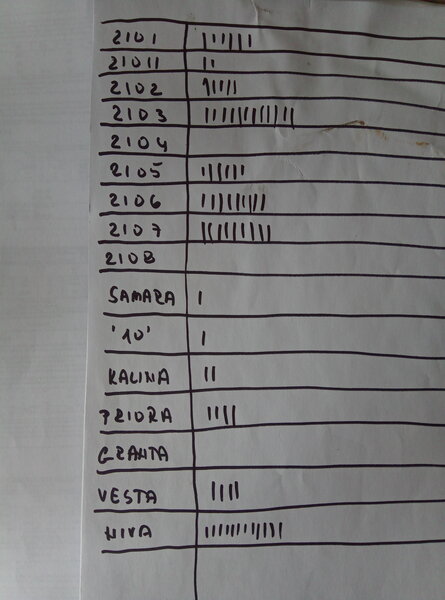 2101 ||||||
21011 ||
2102 |||||
2103 |||||||||||||
2104
2105 ||||||
2106 |||||||||
2107 ||||||||||
2108
SAMARA |
'10' |
KALINA ||
PRIORA ||||
GRANTA
VESTA ||||
NIVA ||||||||||||